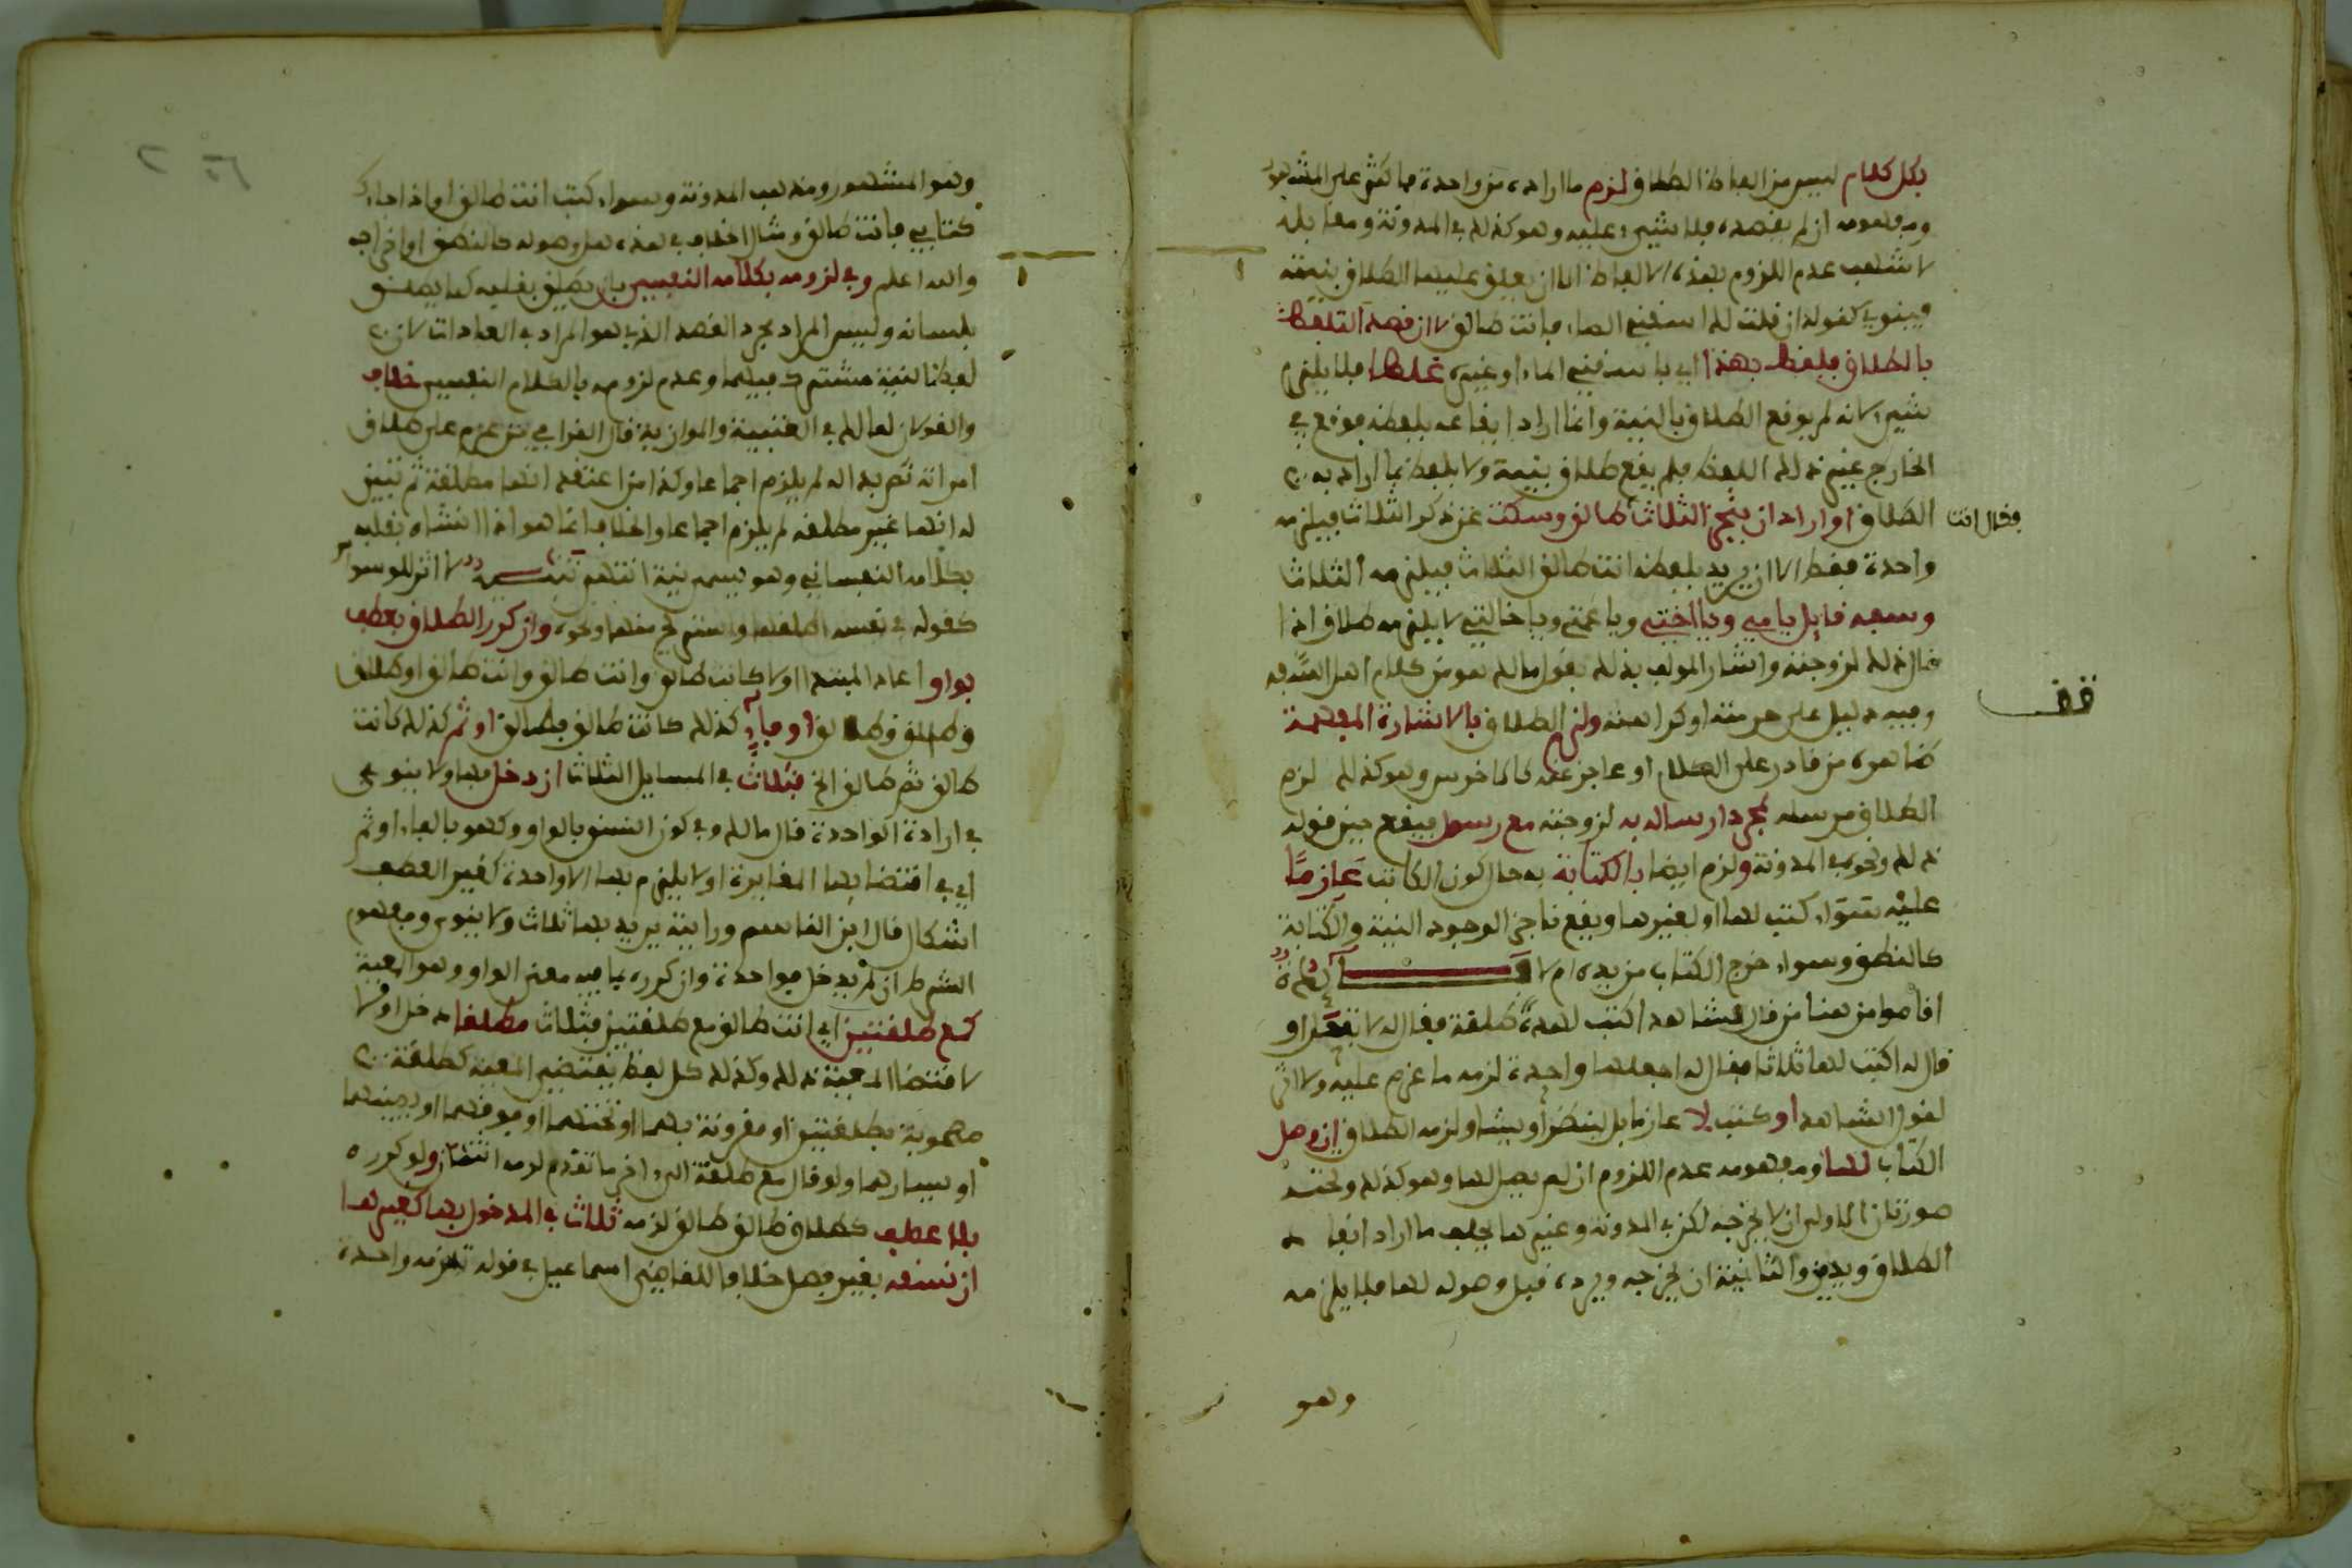 بكل كلام ليس من الفاظ الطلاق لزم ما اراده من واحدة فاكثر على المشهور
ومفهومه ان لم يقصده فلا شيء عليه وهو كذلك في المدونة ومقابله
لاشهب عدم اللزوم بهذه الالفاظ الا ان يعلق عليها الطلاق بنيته
فينوي كقوله ان قلت لك اسقني الماء فانت طالق لا ان قصد التلفظ
بالطلاق فلفظ بهذا اي باسقني الماء او غيره غلطا فلا يلزم
شيء لانه لم يوقع الطلاق بالنية وانما اراد ايقاعه بلفظه فوقع في
الخارج غير ذلك اللفظ فلم يقع طلاق بنية ولا بلفظ مما اراد به
الطلاق او اراد ان ينجز الثلاث فقال انت طالق وسكت عن ذكر الثلاث فيلزمه
واحدة فقط الا ان يريد بلفظ انت طالق الثلاث فيلزمه الثلاث
وسفه قايل يا امي ويا اختي ويا عمتي ويا خالتي لا يلزمه طلاق اذا
قال ذلك لزوجته واشار المولف بذلك لقول مالك هو من كلام اهل السفه
وفيه دليل على حرمته او كراهته ولزم الطلاق بالاشارة المفهمة
ظاهره من قادر على الكلام او عاجز عنه كالاخرس وهو كذلك لزم
الطلاق مرسله بمجرد ارساله به لزوجته مع رسول فيقع حين قوله
ذلك ونحوه في المدونة ولزم ايضا بالكتابة به حال كون الكاتب عازما
عليه سواء كتب لها او لغيرها ويقع ناجزا لوجود النية والكتابة
كالنطق وسواء خرج الكتاب من يده ام لا
اقاموا من هنا من قال لشاهد اكتب لهذه طلقة فقال له لا تفعل او
قال له اكتب لها ثلاثا فقال له اجعلها واحدة لزمه ما عزم عليه ولا اثر
لقول الشاهد او كتب لا عازما بل لينظر او يشاور لزمه الطلاق ان وصل
الكتاب لها ومفهومه عدم اللزوم ان لم يصل لها وهو كذلك وتحته
صورتان الاولى ان لا يخرجه لكن في المدونة وغيرها يحلف ما اراد انفاذ
الطلاق ويدين والثانية ان يخرجه ويرده قبل وصوله لها فلا يلزمه
وهو
قف
وهو المشهور ومذهب المدونة وسواء كتب انت طالق او اذا جاءك
كتابي فانت طالق ومثار الخلاف في هذه هل وصوله كالنطق او اخراجه
والله اعلم وفي لزومه بكلامه النفسي بان يطلق بقلبه كما يطلق
بلسانه وليس المراد مجرد القصد الذي هو المراد في العادات لان
لفظ النية مشترك فيهما وعدم لزومه بالكلام النفسي خلاف
والقولان لمالك في العتبية والموازية قال القرافي من عزم على طلاق
امراته ثم بدا له لم يلزم اجماعا وكذا من اعتقد انها مطلقة ثم تبين
له انها غير مطلقة لم يلزم اجماعا والخلاف انما هو اذا انشاه بقلبه
بكلامه النفساني وهو يسميه نية انتهى تنبيه لا اثر للوسواس
كقوله في نفسه اطلقها واستريح منها ونحوه وان كرر الطلاق بعطف
بواو اعاد المبتدا او لا كانت طالق وانت طالق وانت طالق او طالق
وطالق وطالق او فاء كذلك كانت طالق فطالق او ثم كذلك كانت
طالق ثم طالق الخ فثلاث في المسايل الثلاث ان دخل بها ولا ينوى
في ارادة الواحدة قال مالك وفي كون النسق بالواو وكهو بالفاء او ثم
اي في اقتضايها المغايرة او لا يلزم بها الا واحدة كغير العطف
اشكال قال ابن القاسم ورايته يريد بها ثلاث ولا ينوى ومفهوم
الشرط ان لم يدخل فواحدة وان كرره بما فيه معنى الواو وهو المعية
كمع طلقتين اي انت طالق مع طلقتين فثلاث مطلقا دخل او لا
لاقتضا المعية ذلك وكذلك كل لفظ يقتضي المعية كطلقة
مصحوبة بطلقتين او مقرونة بهما او تحتهما او فوقهما او يمينهما
او يسارهما ولو قال مع طلقة الى اخر ما تقدم لزمه اثنتان ولو كرره
بلا عطف كطالق طالق طالق لزمه ثلاث في المدخول بها كغيرها
ان نسقه بغير فصل خلافا للقاضي اسماعيل في قوله تلزمه واحدة